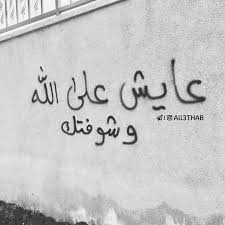 عايش على الله
وشوفتك
| @ Ali3THAB